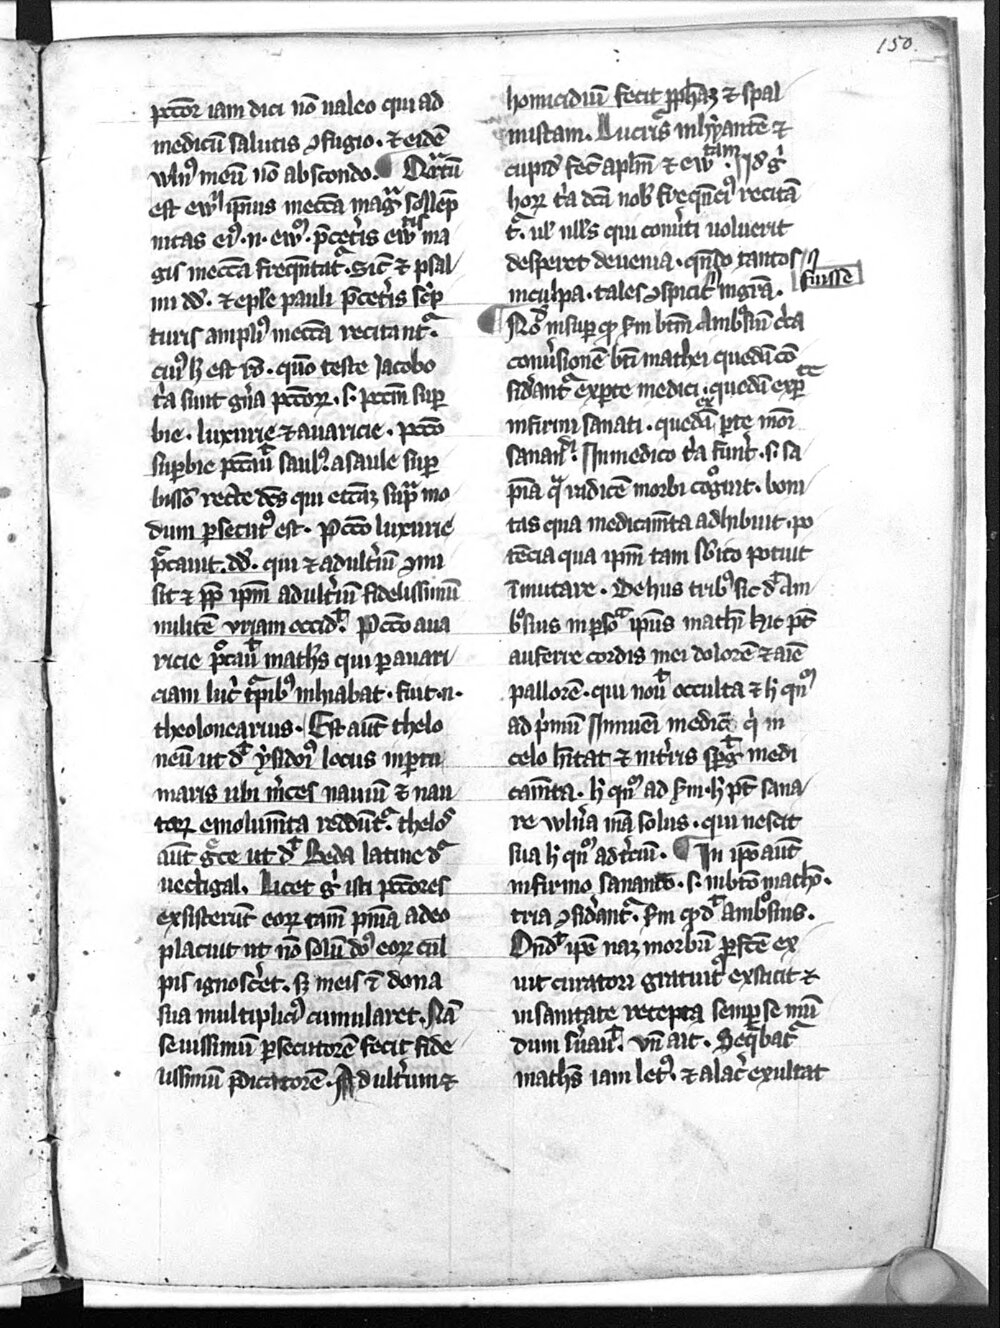 150.
pctor iam dici nō ualeo qui ad
medicū salutis ꝯfugio. ⁊ eidē
uuln᷒ meū nō abscondo. Quartū
est ew̄ ip̄ius
nitas ei᷒. n. ew᷒. p̄cet̓is ew̄tis ma
gis meccā freq̄ntat᷑. Sic̄ ⁊ psal
mi dd̄. ⁊ ep̄le pauli p̄cet̓is sc̓p
turis ampli᷒ meccā recitant᷑.
cui᷒ h̄ est rō. qm̄o teste Jacobo
t̓a sunt gn̄a pctōꝝ. s. pctm̄ suꝑ
bie. luxurie ⁊ auaricie. pctō
suꝑbie pctāu̓ saul᷒. a saule suꝑ
bissō recte dc̄s qui ecc̄aꝫ sup̄ mo
dum ꝑsecut᷒ est. Pctō luxurie
p̄cauit. dd̄. qui ⁊ adult̓iū ꝯmi
sit ⁊ ꝓp̄ ip̄m adult̓iū fidelissimū
militē vriam occid̓. Pctō aua
ricie p̄cau̓ math̄s qui ꝑ auari
ciam luc̓ t̄pib᷒ inhiabat. fuit .n.
theolonearius. Est aūt thelo
neū ut d̄t ysidor᷒ locus in portu
maris ubi m̓ces nauiū ⁊ nau
taꝝ emolum̄ta reddūt᷑. thelos
aūt gᵃce ut d̄t Beda latine d̄r
uectigal. Licet g̓ isti pctōres
exsisterūt eoꝝ tam̄ pn̄ia adeo
placuit ut nō solū dō᷒ eoꝝ cul
pis ignosc̓et. sꝫ meis ī dona
sua multiplici᷒ cumularet. Nā
seuissimū ꝑsecutorē fecit fide
lissimū p̄dicatorē. Adult̓um ⁊
homicidiū fecit ꝓph̄aꝫ ⁊ spal
mistam. Lucris inhyantē ⁊
cupid̓ fec̄ aplm̄ ⁊ ew̄tam. Id̓ g̓
hoꝝ t̓a dcā nob̓ freq̄nci᷒ recitā
t᷑. ul̓ null᷒s qui conu̓ti uoluerit
desperet de uenia. qn̄do tantos
in culpa. tales ꝯspicit̓ in grā̄. fuisse
Nō̄ insuꝑ qꝫ s̄m btm̄ Ambſiū c̄ca
conu̓sionē bt̄i mathei quedā cō
sid̓ant᷑ ex ꝑte medici. quedā ex ꝑte
infirmi sanati. quedā ex ꝑte mōi
sanan̄di. In medico t̓a fuīt. s. sa
pīa qᵃ radicē morbi cōgūit. boni
tas qua medicam̄ta adhibuit. po
tēcia qua ip̄m tam sb̓ito potuit
īmutare. De hiis trib᷒ sic d̄t Am
bᵒsius in ꝑsōa ip̄ius math̄i hic pōt
auferre cordis mei dolorē ⁊ aīe
pallorē. qui nou̓ occulta ⁊ h̄ qn̄᷒
ad p̓mū Inueni medicū qui in
celo hītat ⁊ in t̓ris spg̓it medi
cam̄ta. h̄ qn̄᷒ ad s̄m. h̄ pōt sana
re uuln̓a mā solus. qui nescit
sua h̄ qn̄᷒ ad t̓ciū. In ip̄o aūt
infirmo sanando. s. in btō math̓o.
tria ꝯsid̓ant᷑. s̄m qd̄ d̄t ambᵒsius.
Ond̓t ip̄e naꝫ morbū ꝑfc̄e ex
uit curatori gratuit᷒ exstitit ⁊
in sanitate recepta semꝑ se mū
dum s̓uau̓. vn̄ ait. Seq̄bat᷑
math̄s iam let᷒. ⁊ alac̓ exultat